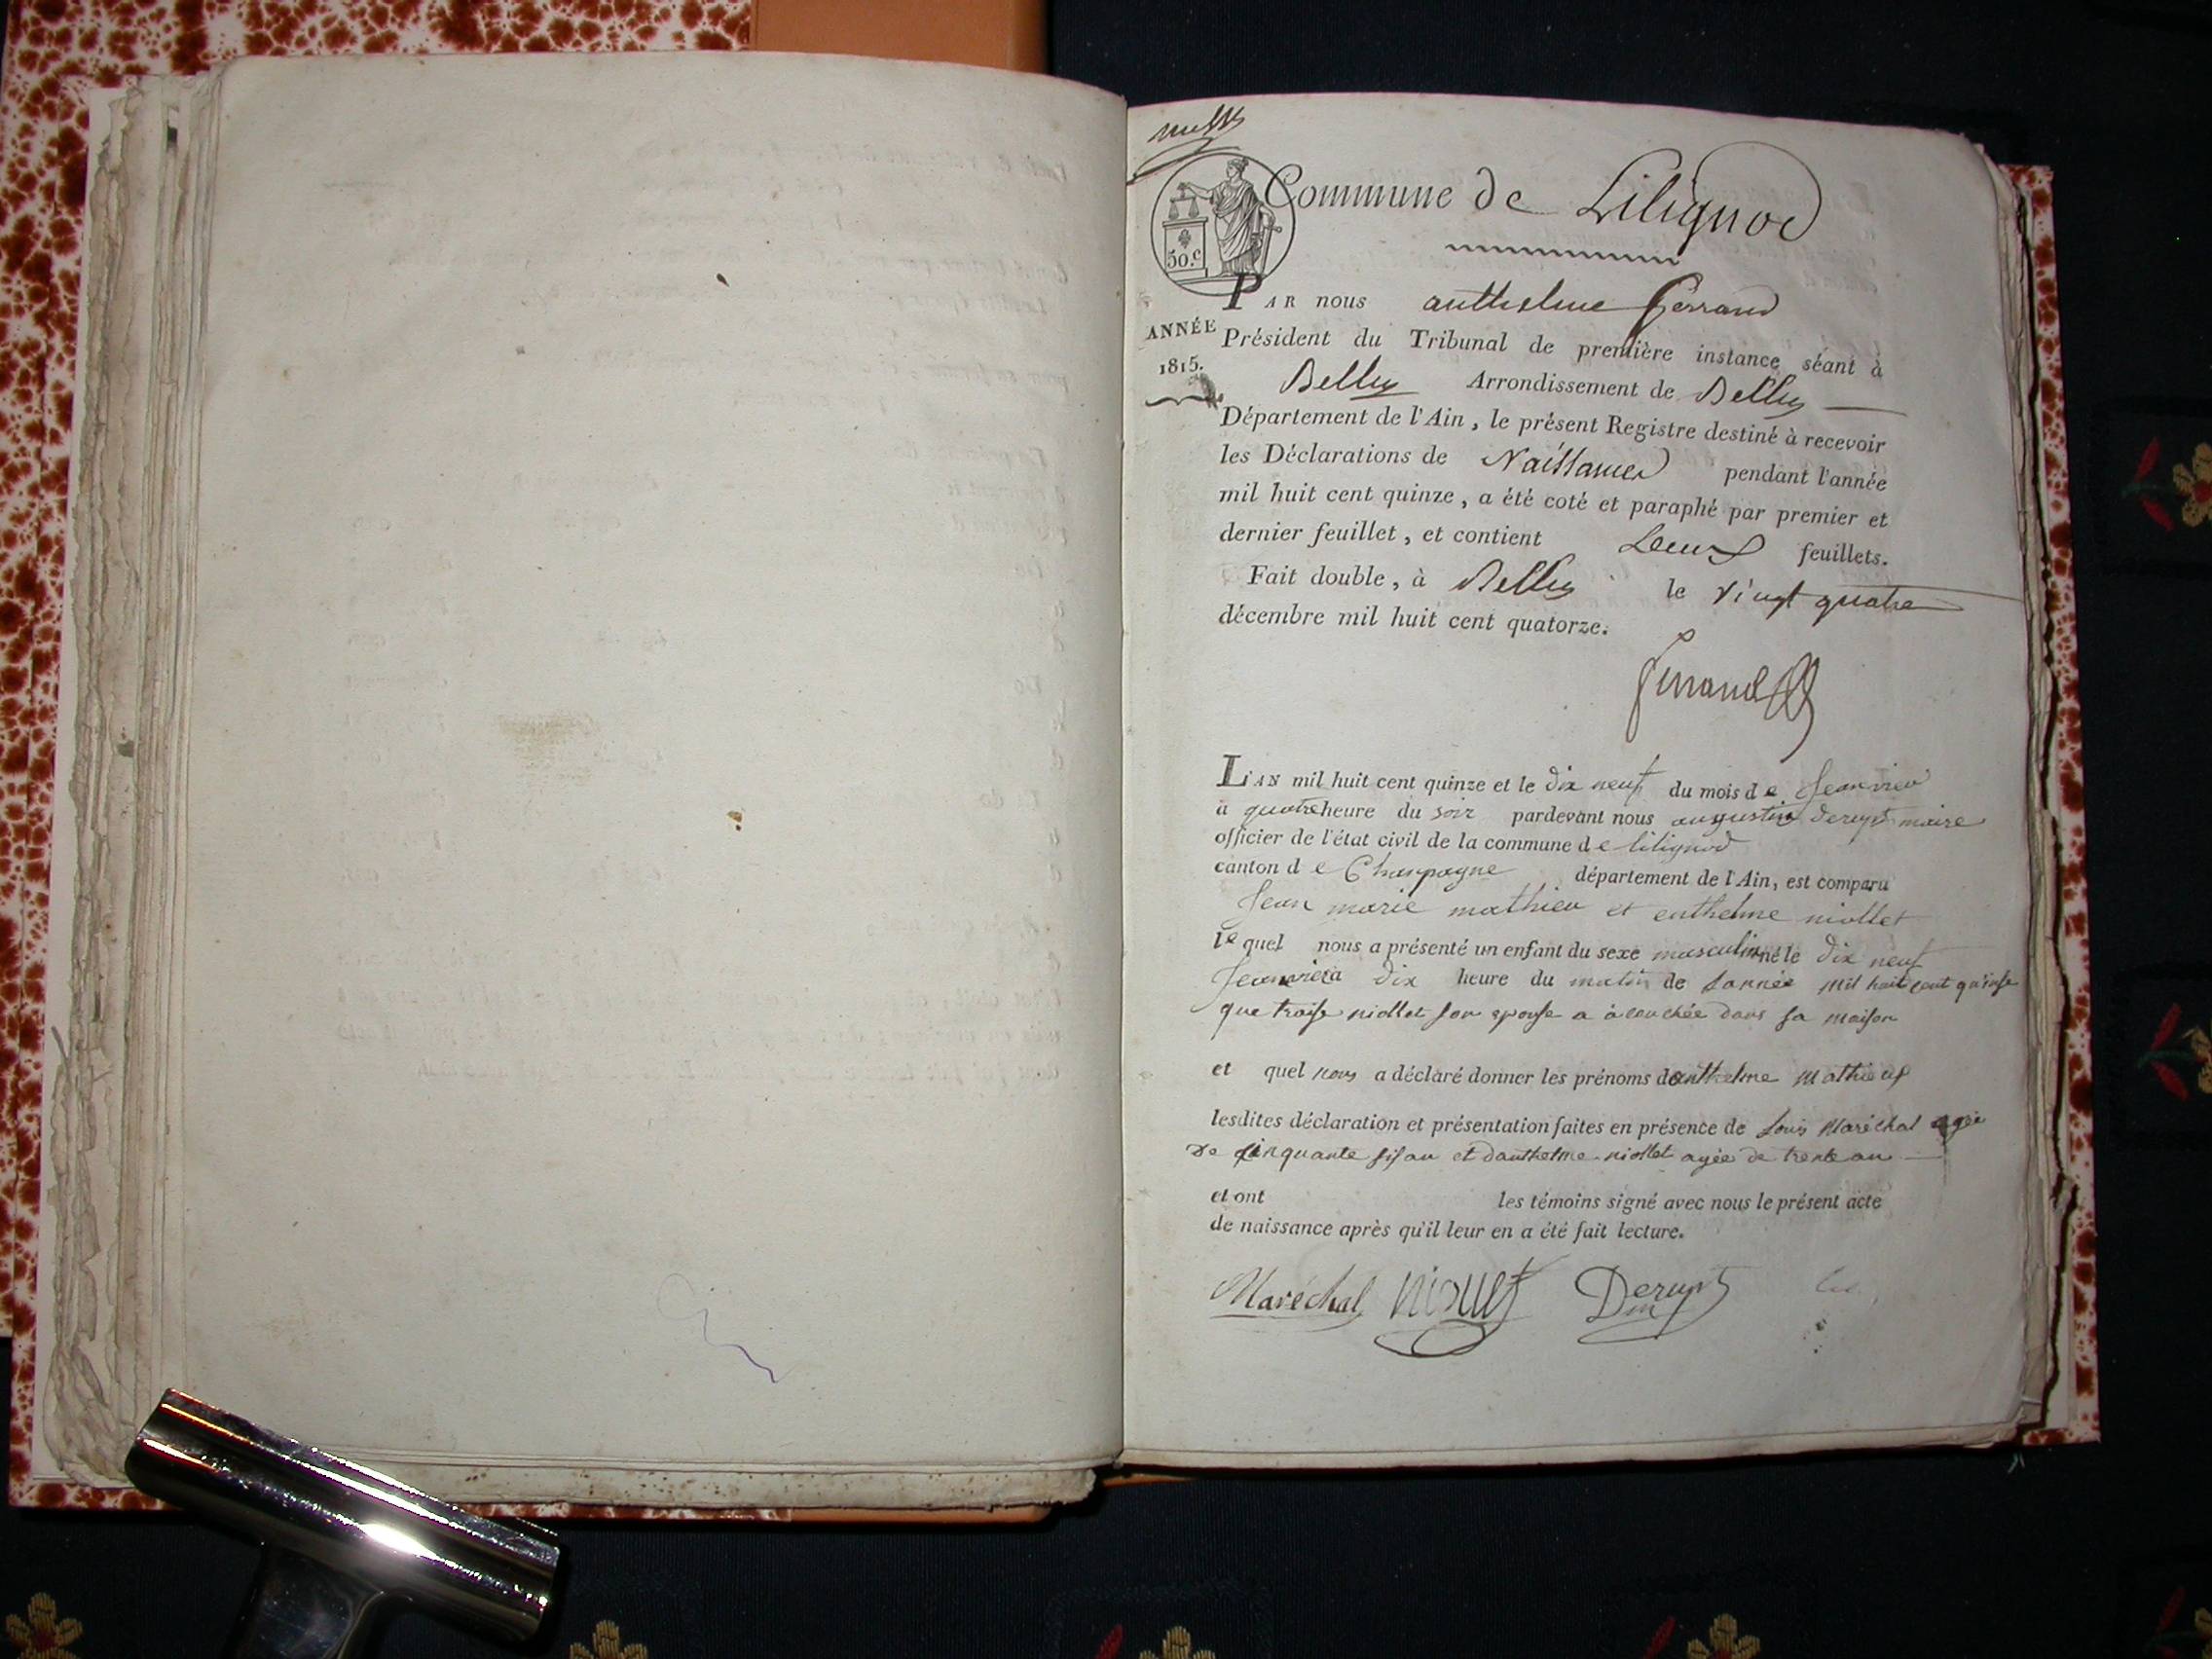 Commune de Lilignod
50.c
PAR nous anthelme Ferrand
ANNÉE
1815.
Président du Tribunal de première instance séant à
Belley Arrondissement de Belley
Département de l'Ain, le présent Registre destiné à recevoir
les Déclarations de Naissances pendant l'année
mil huit cent quinze, a été coté et paraphé par premier et
dernier feuillet, et contient Deux feuillets.
Fait double, à Belley le vingt quatre
décembre mil huit cent quatorze.
Ferrand
L'AN mil huit cent quinze et le dix neuf du mois de Jeanvier
à quatre heure du soir pardevant nous augustin Derupt maire
officier de l'état civil de la commune de lilignod
canton de Champagne département de l'Ain, est comparu
Jean marie mathieu et enthelme niollet
lequel nous a présenté un enfant du sexe masculin né le dix neuf
Jeanvier à dix heure du matin de lannée mil huit cent quinse
que niollet son epouse a acouchée dans sa maison
et quel nous a déclaré donner les prénoms danthelme Mathieux
lesdites déclaration et présentation faites en présence de Louis Maréchal agée
De cinquante sis an et danthelme niollet agée de trente an
et ont les témoins signé avec nous le présent acte
de naissance après qu'il leur en a été fait lecture.
Maréchal niollet Derupt